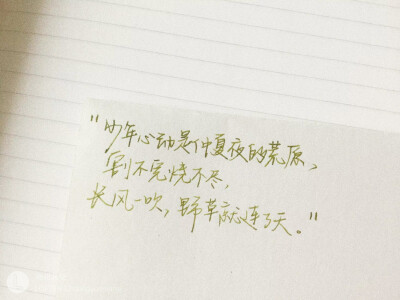 "少年心动是仲夏夜的荒原，
割不完烧不尽，
长风一吹，野草就连了天。"